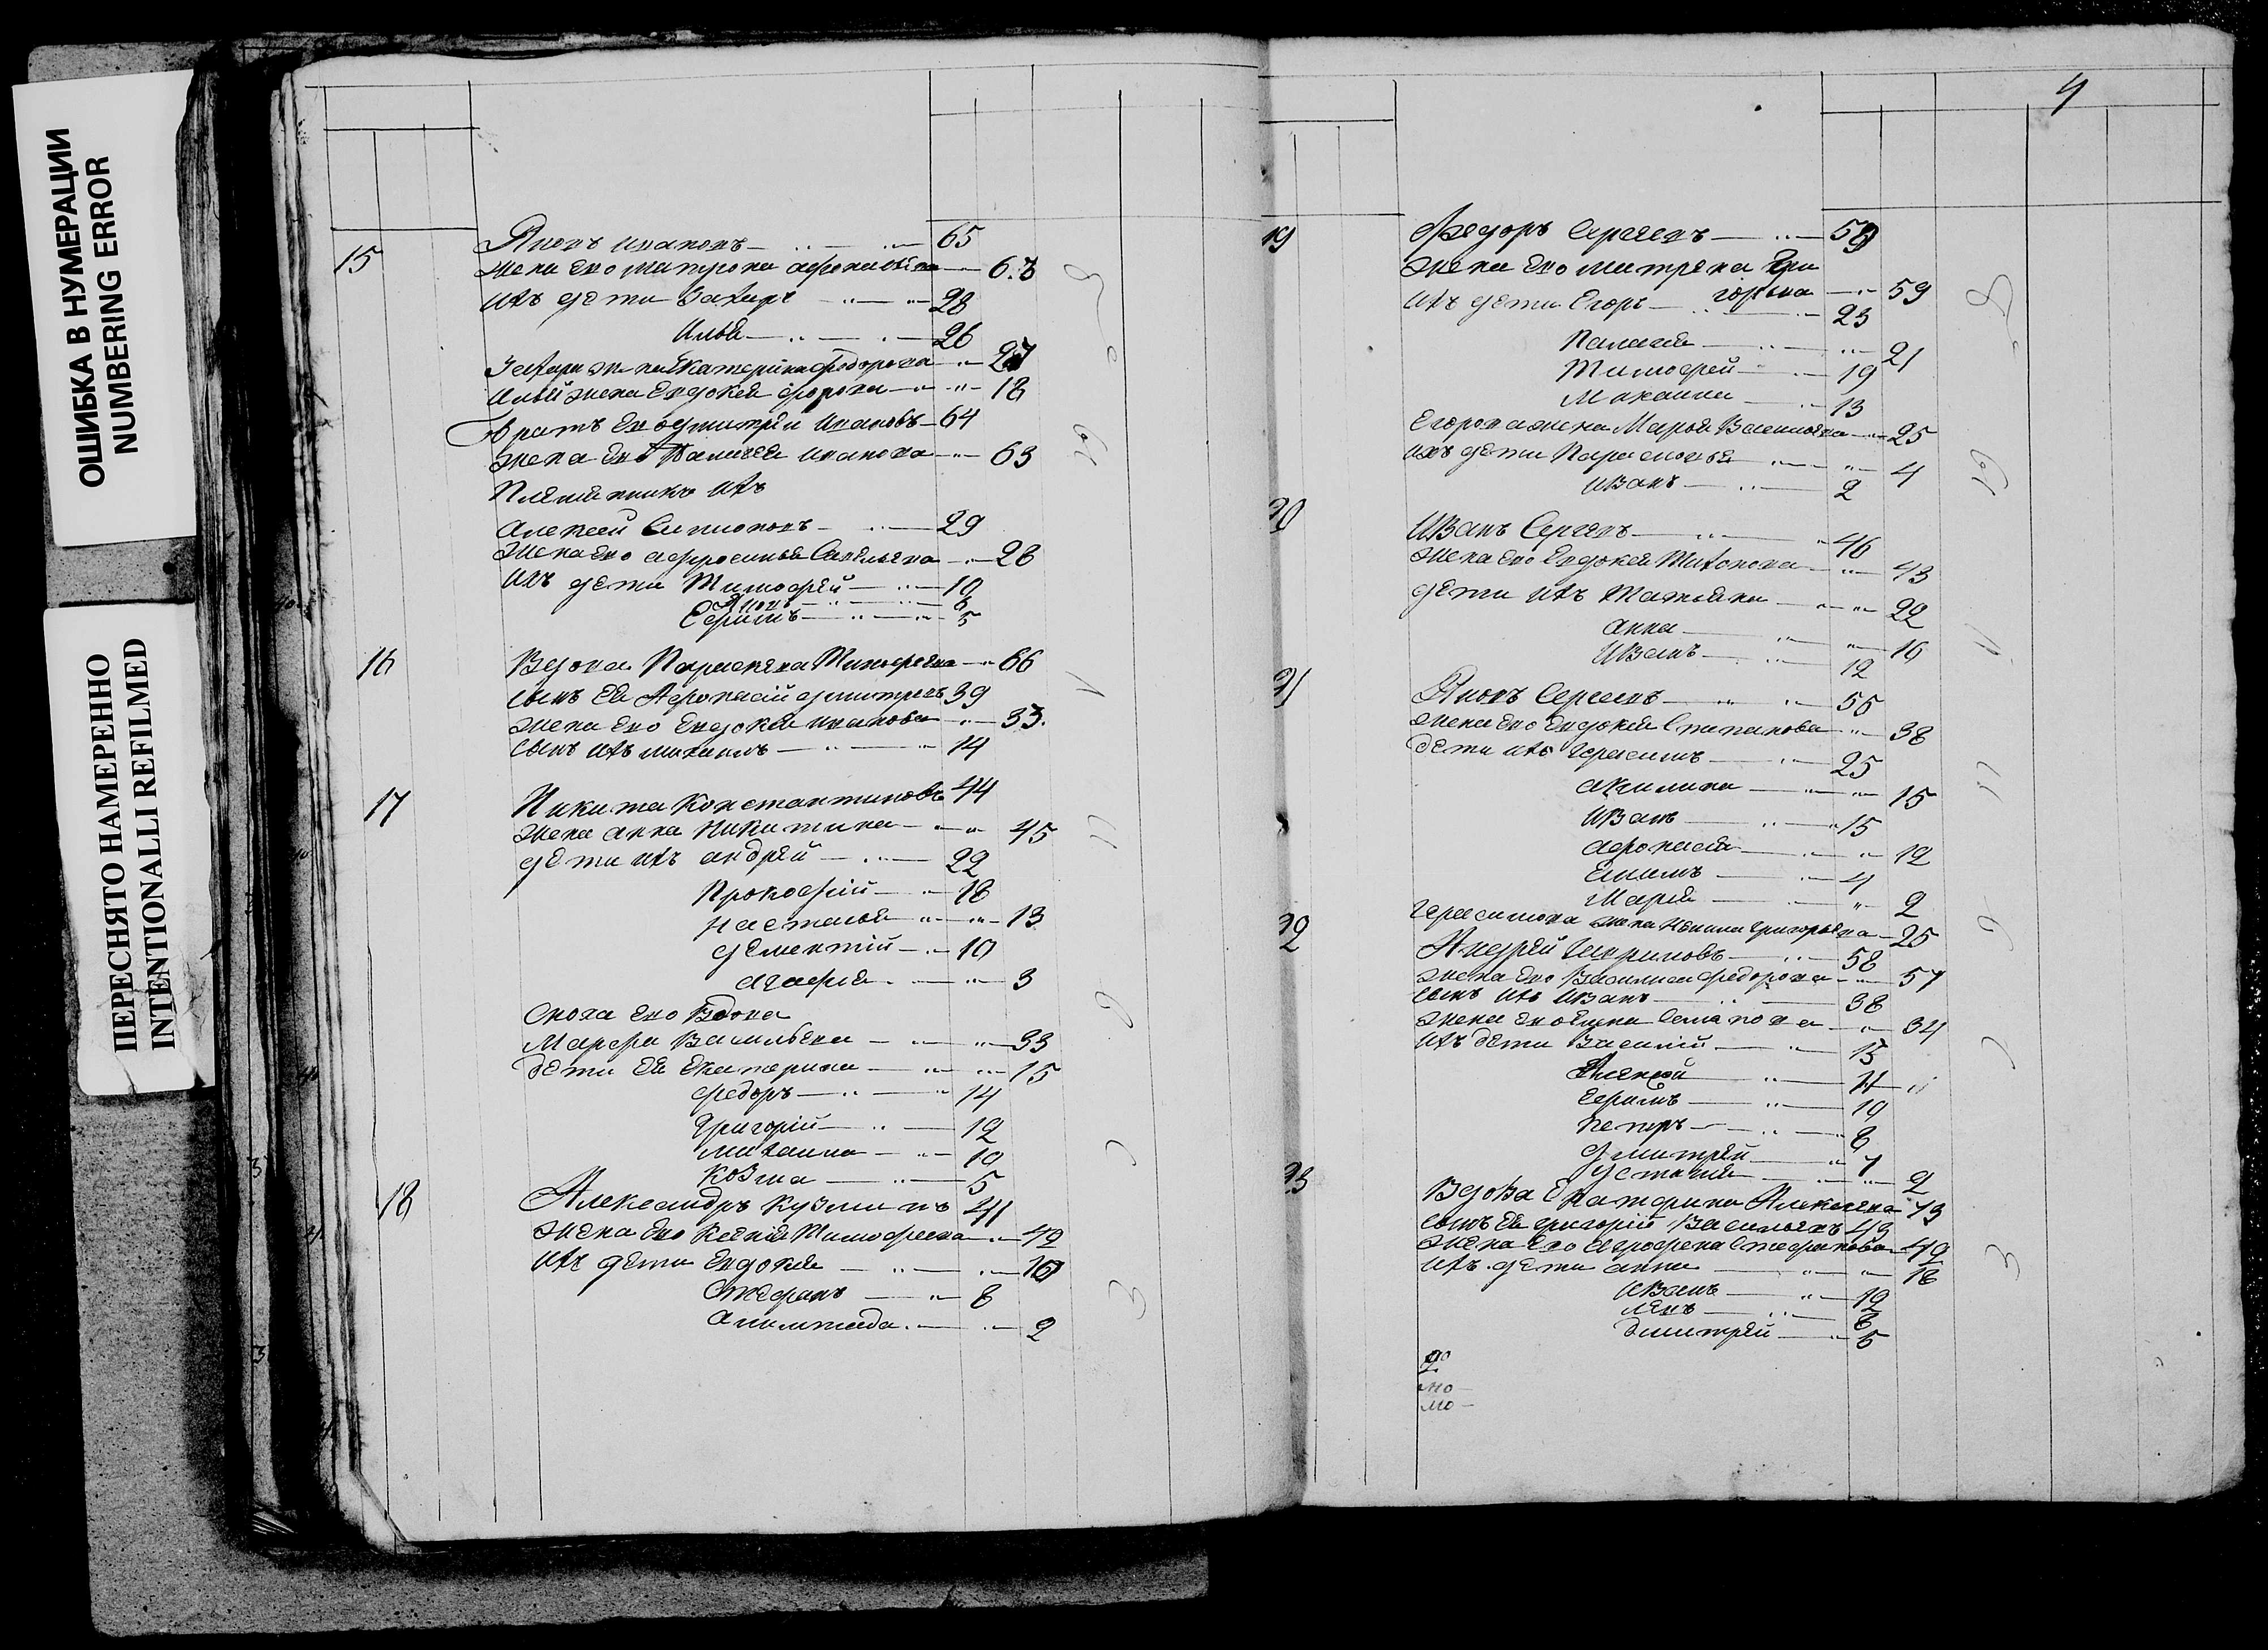 ОШИБКА В НУМЕРАЦИИ
NUMBERING ERROR
ПЕРЕСНЯТО НАМЕРЕННО
INTENTIONALLI REFILMED
15 Яковъ Ивановъ 65
жена его Матрона Афонасьева 63
ихъ дети Захаръ 28
Илья 26
Захара жена Екатерина Федорова 27
Ильи жена Евдокея 18
Братъ его Дмитрей Ивановъ 64
жена его Палагея Иванова 63
Племянникъ ихъ
Алексей 29
жена его Афросинья Савельева 28
ихъ дети Тимофей 10
Яковъ 8
Ефимъ 5
16 Вдова Парасковья Тимофеева 66
сынъ ея Афонасий Дмитревъ 39
жена его Евдокея Иванова 33
сынъ ихъ Михаилъ 14
17 Никита Константиновъ 44
жена Анна Никитина 45
дети ихъ Андрей 22
Прокофий 18
Настасья 13
Дементий 10
Агафия 3
Сноха его Вдова
Марфа Васильева 33
дети ея Екатерина 15
Федоръ 14
Григорий 12
Михаила 10
Козма 5
18 Александръ Кузминъ 41
жена его Ксения Тимофеева 42
ихъ дети Евдокея 10
Стефанъ 8
2
4
19 Федоръ Сергеевъ 59
жена его Матрена Гри
горьева 59
ихъ дети Егоръ 23
Палагея 21
Тимофей 19
Михаила 13
Егорова жена Марья Васильева 25
ихъ дети Парасковья 4
Иванъ 2
20 Иванъ Сергевъ 46
жена его Евдокея Титонова 43
дети ихъ Татьяна 22
Анна 16
Иванъ 12
21 Яковъ Сергеевъ 55
жена его Евдокея Степанова 38
дети ихъ Герасимъ 25
Акилина 15
Иванъ 15
Афонасья 12
4
Марья 2
Герасимова жена Григорьева 25
22 Андрей 58
жена его Василиса Федорова 57
сынъ ихъ Иванъ 38
жена его 34
ихъ дети Василий 13
Алексей 11
Ефимъ 10
Петръ 8
Дмитрей 7
2
23 Вдова Екатерина Алексеева 73
сынъ ея Григорий Васильевъ 43
жена его Агрофена Стефанова 42
ихъ дети Анна 18
Иванъ 12
Левъ 8
Дмитрей 5
мо
мо